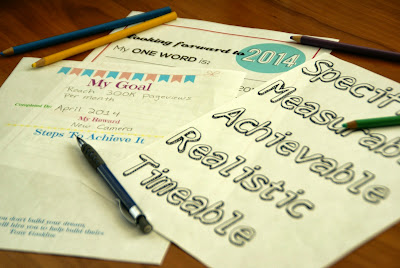 Looking forward to
2014
My ONE WORD is:
My Goal
Reach 200K pageviews
per month
Completed By: April 2014
My Reward
New Camera
Steps To Achieve It
Specif
Measurable
Achievable
Realistic
Timeable
don't build your dream,
will hire you to help build theirs
Tony Gaskins